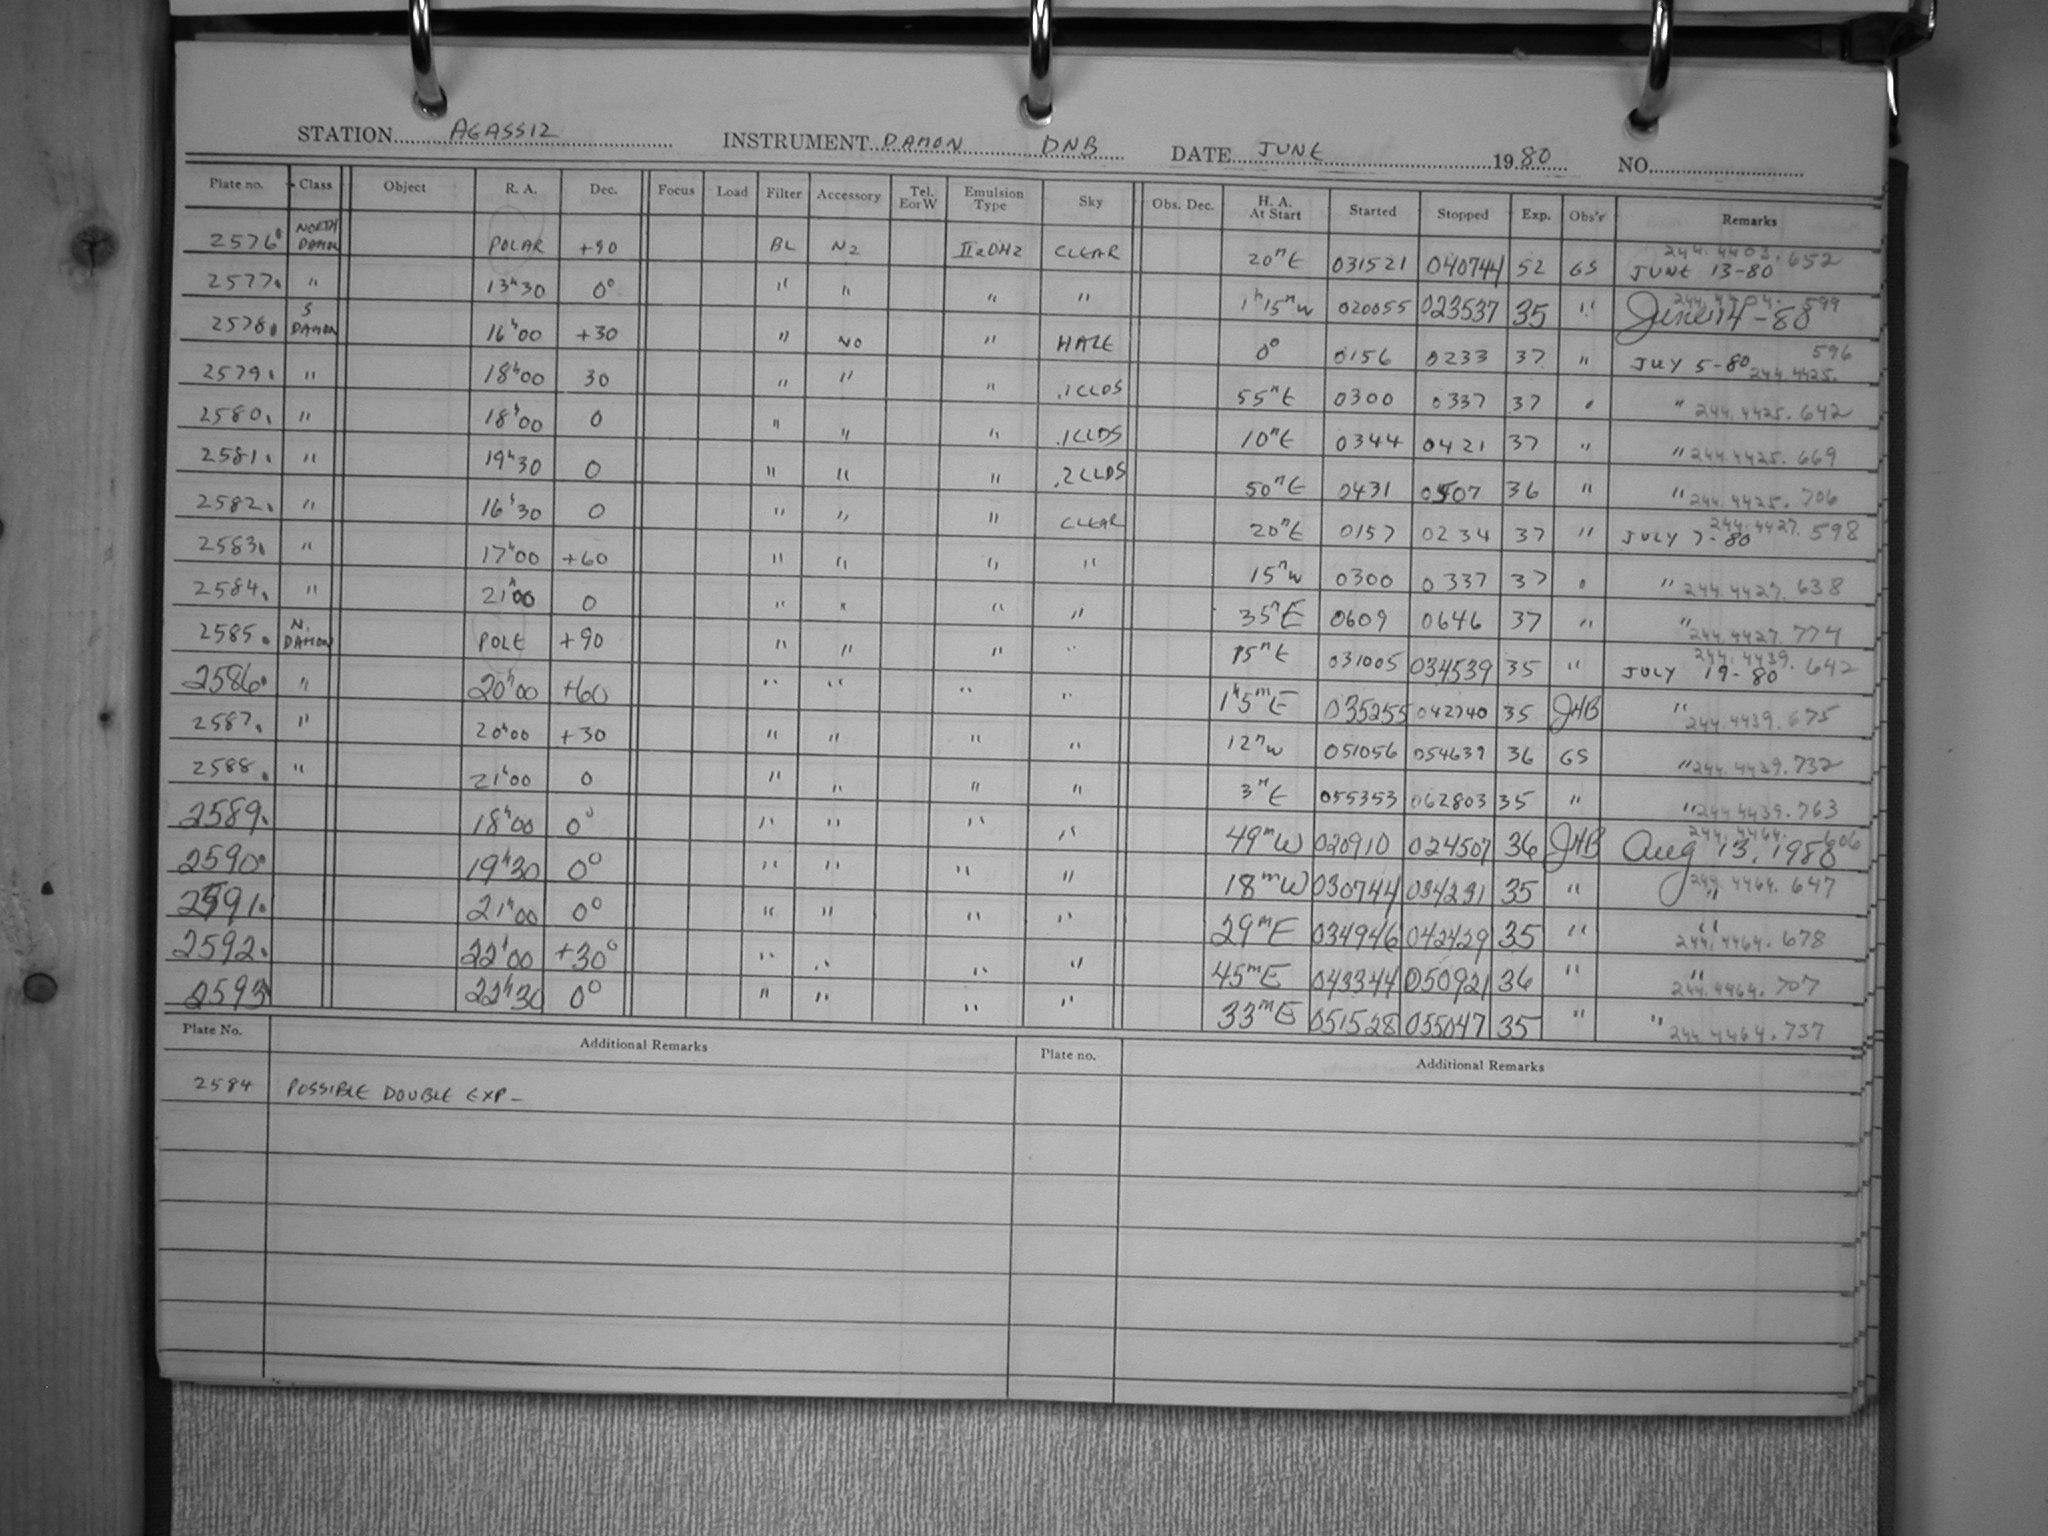 STATION AGASSIZ INSTRUMENT DAMON DNB DATE JUNE 1980 NO.
Plate no. Class Object R. A. Dec. Focus Load Filter Accessory Tel. EorW Emulsion Type Sky Obs. Dec. H. A. At Start Started Stopped Exp. Obs'r Remarks
2576 NORTH DAMON POLAR +90 BL N2 IIaDH2 CLEAR 20mE 031521 040744 52 GS JUNE 13-80 244.4403.652
2577 " 13h30 0° " " " " 1h15mW 020055 023537 35 " June 14-80 244.4404.599
2578 S DAMON 16h00 +30 " NO " HAZE 0° 0156 0233 37 " JULY 5-80 244.4425.596
2579 " 18h00 30 " " " .1CLDS 55mE 0300 0337 37 " " 244.4425.642
2580 " 18h00 0 " " " .1CLDS 10mE 0344 0421 37 " " 244.4425.669
2581 " 19h30 0 " " " .2CLDS 50mE 0431 0507 36 " " 244.4425.706
2582 " 16h30 0 " " " CLEAR 20mE 0157 0234 37 " JULY 7-80 244.4427.598
2583 " 17h00 +60 " " " " 15mW 0300 0337 37 " " 244.4427.638
2584 " 21h00 0 " " " " 35mE 0609 0646 37 " " 244.4427.774
2585 N. DAMON POLE +90 " " " " 15mE 031005 034539 35 " JULY 19-80 244.4439.642
2586 " 20h00 +60 " " " " 1h5mE 035255 042740 35 JHB " 244.4439.675
2587 " 20h00 +30 " " " " 12mW 051056 054639 36 GS " 244.4439.732
2588 " 21h00 0 " " " " 3mE 055353 062803 35 " " 244.4439.763
2589 18h00 0° " " " " 49mW 020910 024507 36 JHB Aug 13, 1980 244.4464.606
2590 19h30 0° " " " " 18mW 030744 034231 35 " " 244.4464.647
2591 21h00 0° " " " " 29mE 034946 042429 35 " " 244.4464.678
2592 22h00 +30° " " " " 45mE 043344 050921 36 " " 244.4464.707
2593 22h30 0° " " " " 33mE 051528 055047 35 " " 244.4464.737
Plate No. Additional Remarks Plate no. Additional Remarks
2584 POSSIBLE DOUBLE EXP-